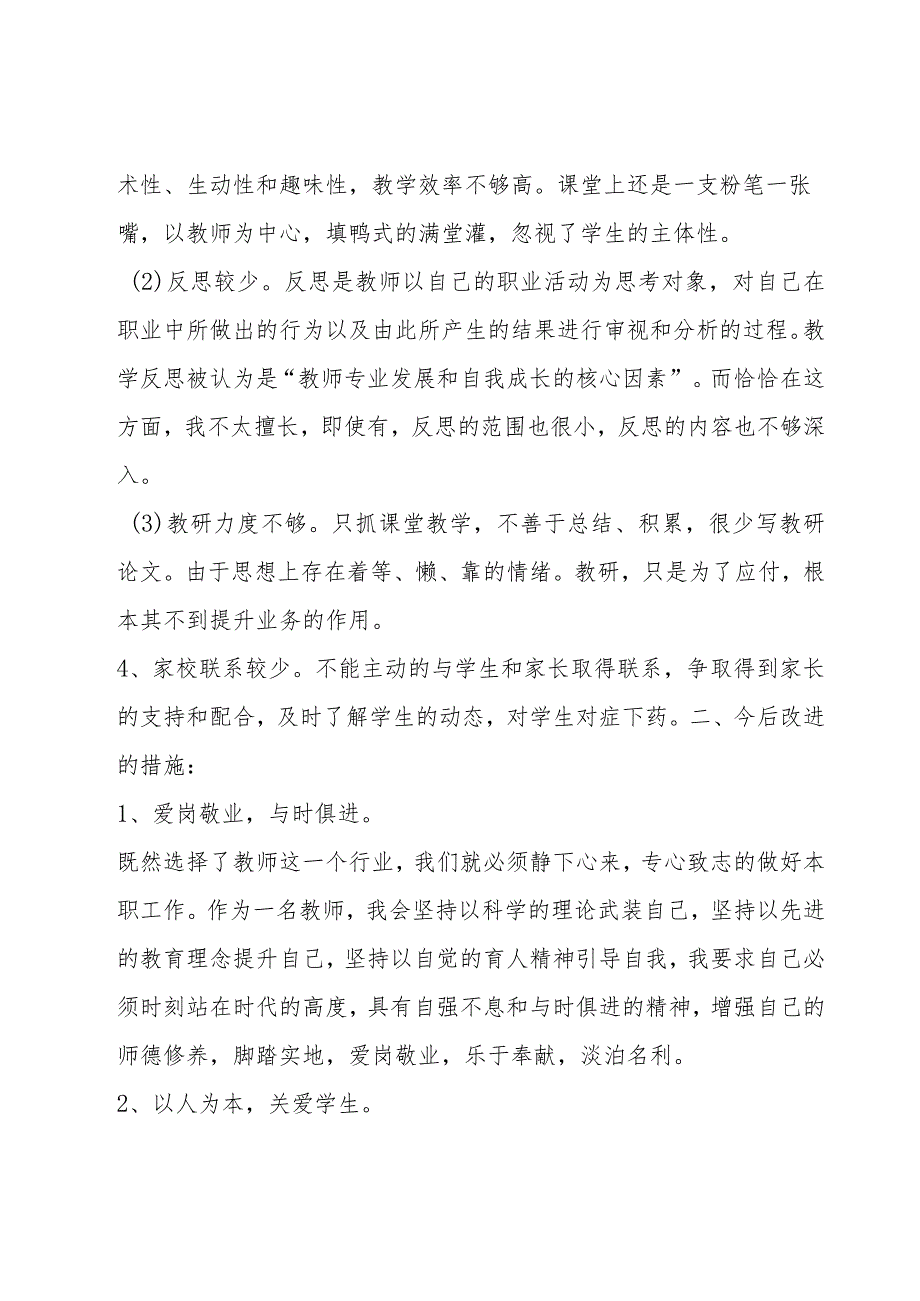 术性、生动性和趣味性，教学效率不够高。课堂上还是一支粉笔一张
嘴，以教师为中心，填鸭式的满堂灌，忽视了学生的主体性。
(2)反思较少。反思是教师以自己的职业活动为思考对象，对自己在
职业中所做出的行为以及由此所产生的结果进行审视和分析的过程。教
学反思被认为是“教师专业发展和自我成长的核心因素”。而恰恰在这
方面，我不太擅长，即使有，反思的范围也很小，反思的内容也不够深
入。
(3)教研力度不够。只抓课堂教学，不善于总结、积累，很少写教研
论文。由于思想上存在着等、懒、靠的情绪。教研，只是为了应付，根
本其不到提升业务的作用。
4、家校联系较少。不能主动的与学生和家长取得联系，争取得到家长
的支持和配合，及时了解学生的动态，对学生对症下药。二、今后改进
的措施：
1、爱岗敬业，与时俱进。
既然选择了教师这一个行业，我们就必须静下心来，专心致志的做好本
职工作。作为一名教师，我会坚持以科学的理论武装自己，坚持以先进
的教育理念提升自己，坚持以自觉的育人精神引导自我，我要求自己必
须时刻站在时代的高度，具有自强不息和与时俱进的精神，增强自己的
师德修养，脚踏实地，爱岗敬业，乐于奉献，淡泊名利。
2、以人为本，关爱学生。